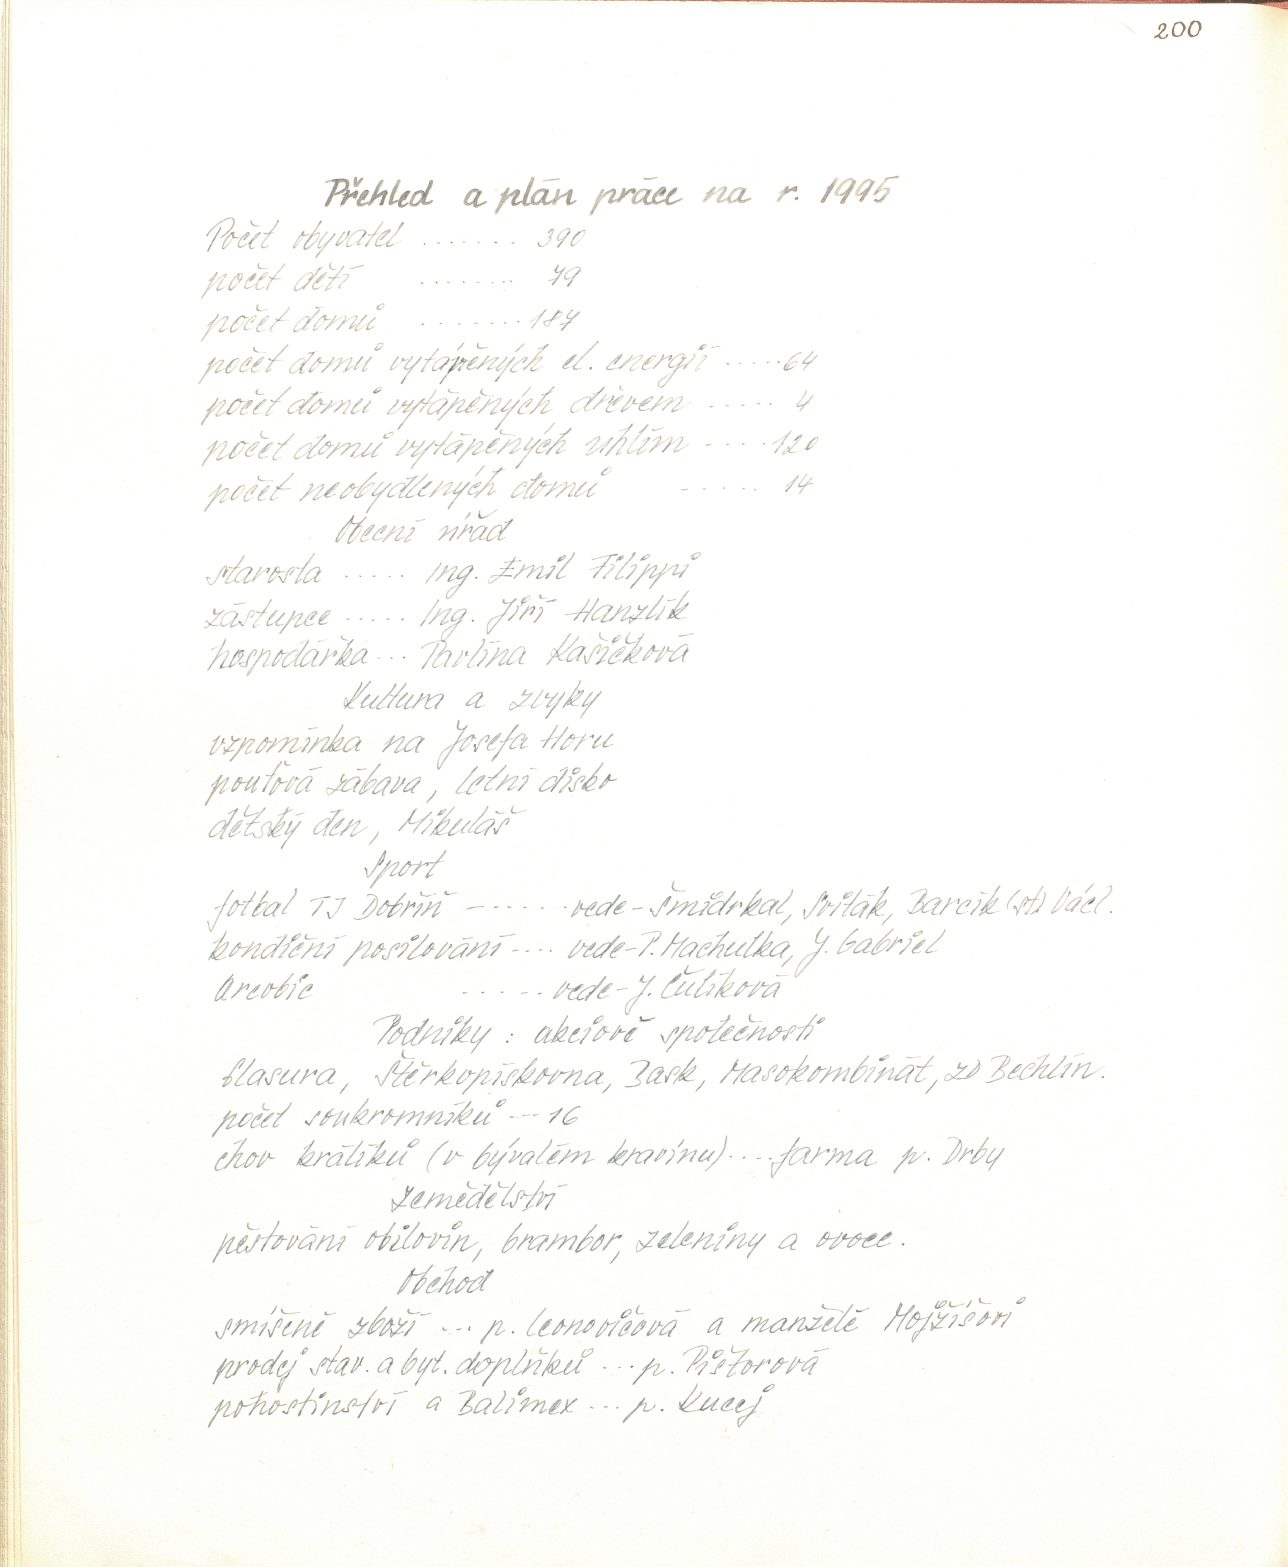 200
Přehled a plán práce na r. 1995
Počet obyvatel ....... 390
počet dětí ....... 79
počet domů ....... 187
počet domů vytápěných el. energií ..... 64
počet domů vytápěných dřevem ..... 4
počet domů vytápěných uhlím ..... 120
počet neobydlených domů ..... 14
Obecní úřad
starosta ..... Ing. Emil Filippi
zástupce ..... Ing. Jiří Hanzlík
hospodářka ... Pavlína Kašičková
Kultura a zvyky
vzpomínka na Josefa Horu
pouťová zábava, letní disko
dětský den, Mikuláš
Sport
fotbal TJ Dobříň ...... vede - Šmidrkal, Sviták, Barcík (st) Václ.
kondiční posilování .... vede - P. Machutka, J. Gabriel
Areobic ..... vede - J. Čulíková
Podniky : akciové společnosti
Glasura, Štěrkopískovna, Bask, Masokombinát, ZD Bechlín.
počet soukromníků --- 16
chov králíků (v bývalém kravínu) .... farma p. Drby
Zemědělství
pěstování obilovin, brambor, zeleniny a ovoce.
Obchod
smíšené zboží ... p. Leonovičová a manželé Mojžíšovi
prodej stav. a byt. doplňků ... p. Pištorová
pohostinství a Balimex ... p. Kucej